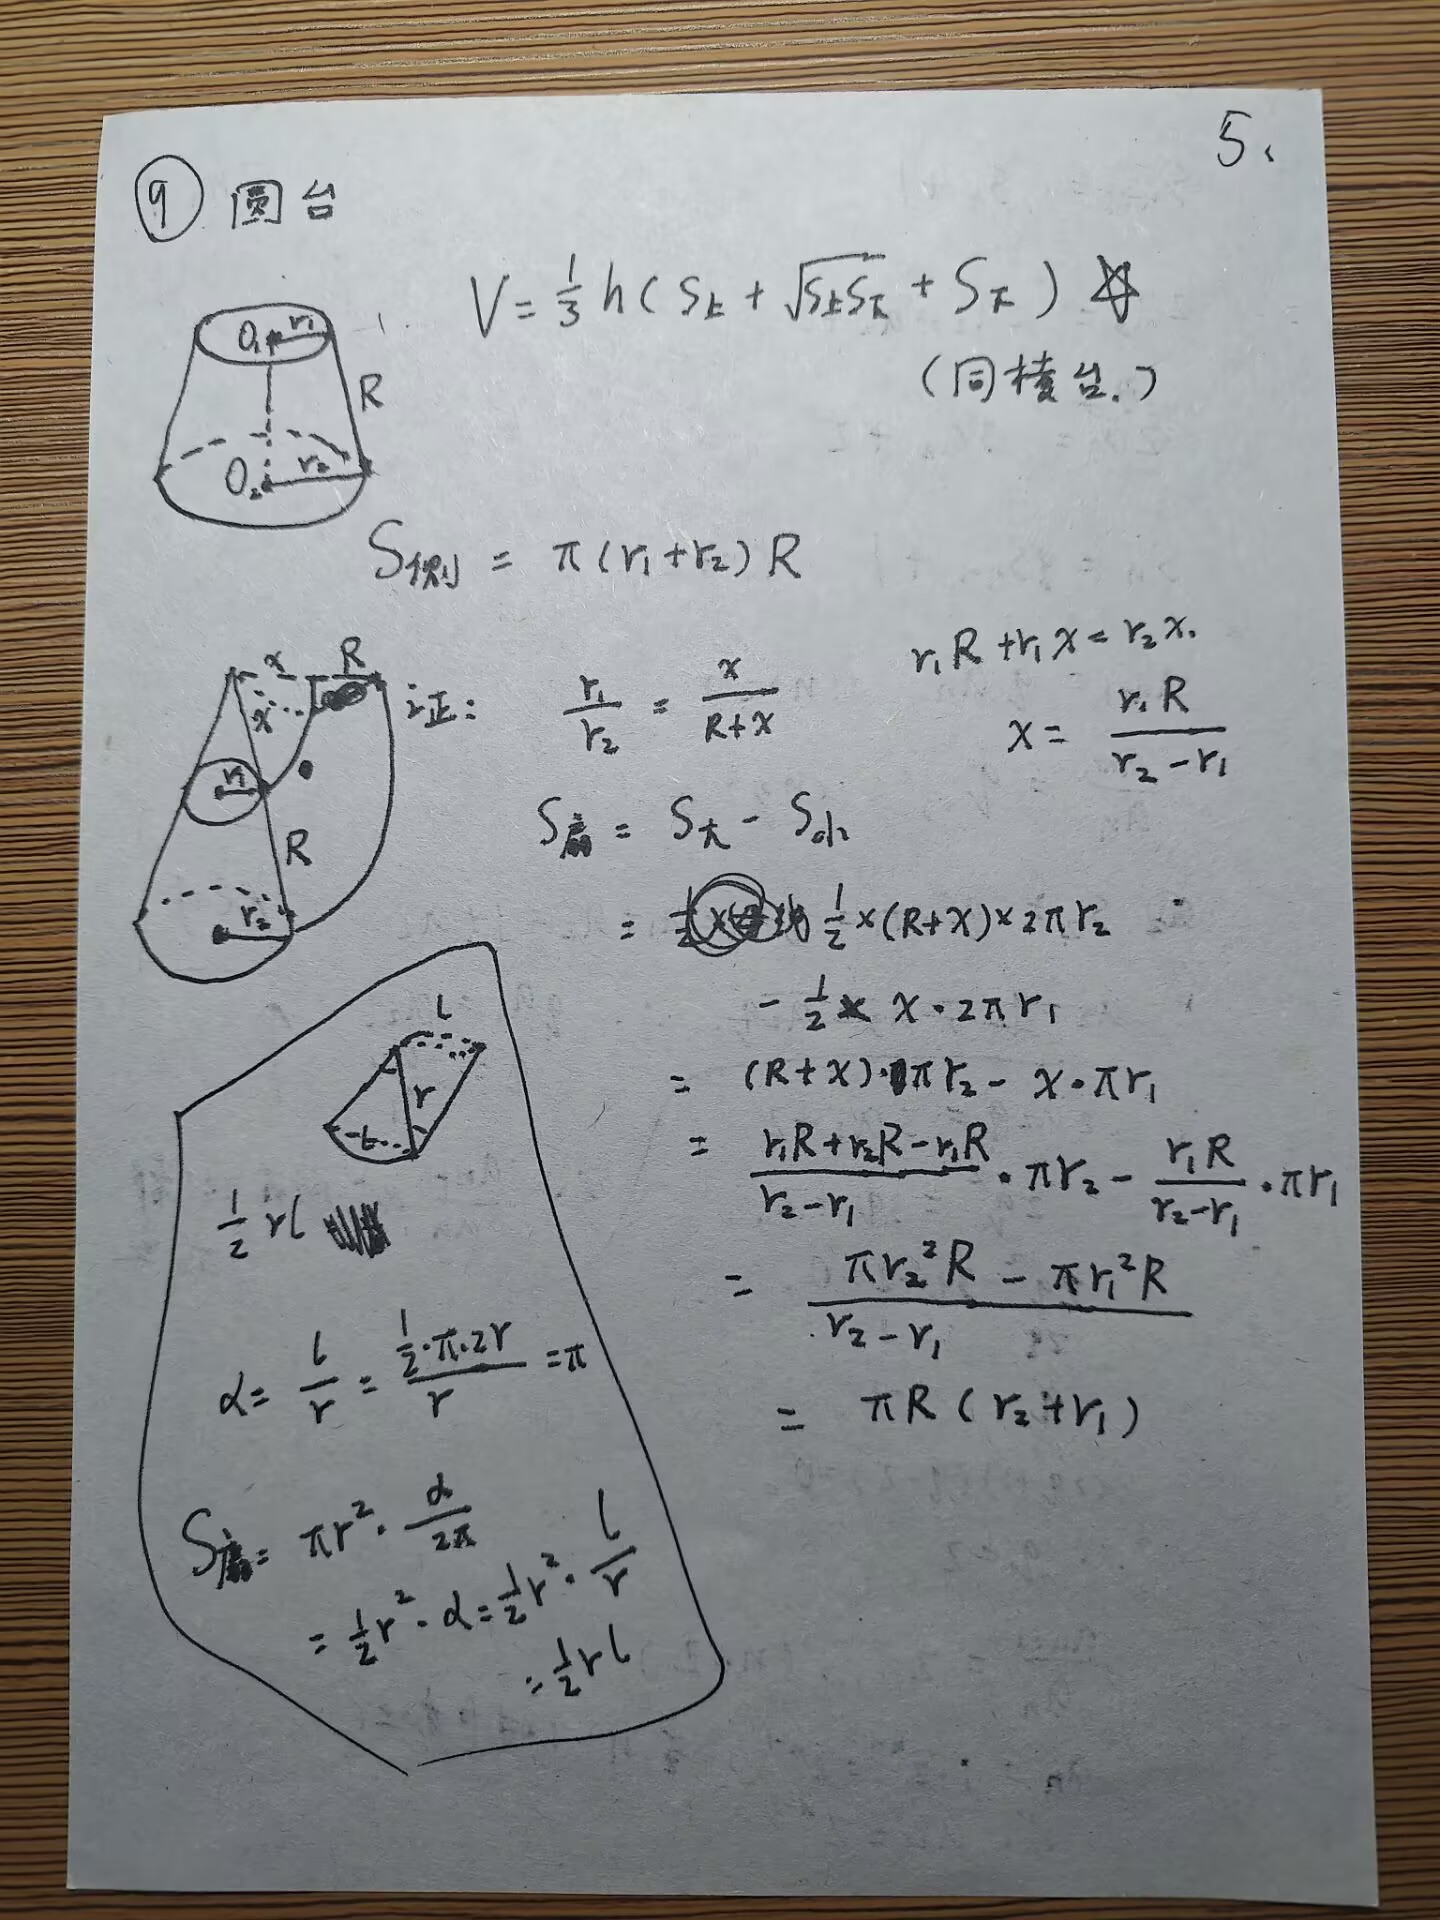 5.
⑨ 圆台
V = 1/3 h ( S上 + √(S上S下) + S下 ) ☆
(同棱台.)
O₁ r₁
R
O₂ r₂
S侧 = π(r₁+r₂)R
x R
x
r₁
R
r₂
证: r₁/r₂ = x/(R+x)
r₁R + r₁x = r₂x.
x = r₁R/(r₂-r₁)
S扇 = S大 - S小
= 1/2×(R+x)×2πr₂
- 1/2 × x·2πr₁
= (R+x)·πr₂ - x·πr₁
= (r₁R+r₂R-r₁R)/(r₂-r₁)·πr₂ - r₁R/(r₂-r₁)·πr₁
= (πr₂²R - πr₁²R)/(r₂-r₁)
= πR(r₂+r₁)
l
r
1/2 rl
α = l/r = (1/2·π·2r)/r = π
S扇 = πr²·α/2π
= 1/2 r²·α = 1/2 r²·l/r
= 1/2 rl